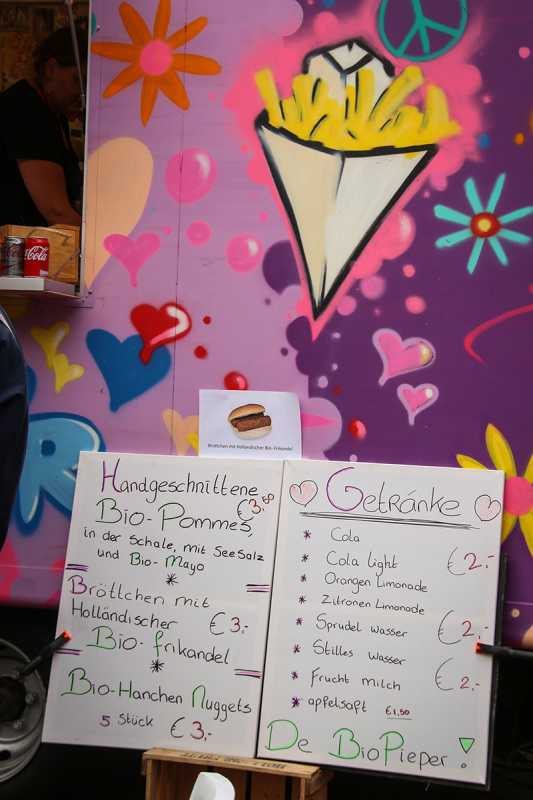 Cola
R
Bröttchen mit Holländischer Bio-Frikandel
Handgeschnittene
€3.50
Bio-Pommes,
in der Schale, mit SeeSalz
und Bio-Mayo
*
Bröttchen mit
Holländischer €3,-
Bio-frikandel
*
Bio-Hanchen Nuggets
5 Stück €3,-
Getränke
* Cola
* Cola light €2,-
* Orangen Limonade
* Zitronen Limonade
* Sprudel wasser €2,-
* Stilles wasser
* Frucht milch €2,-
* apfelsaft €1,50
De BioPieper!